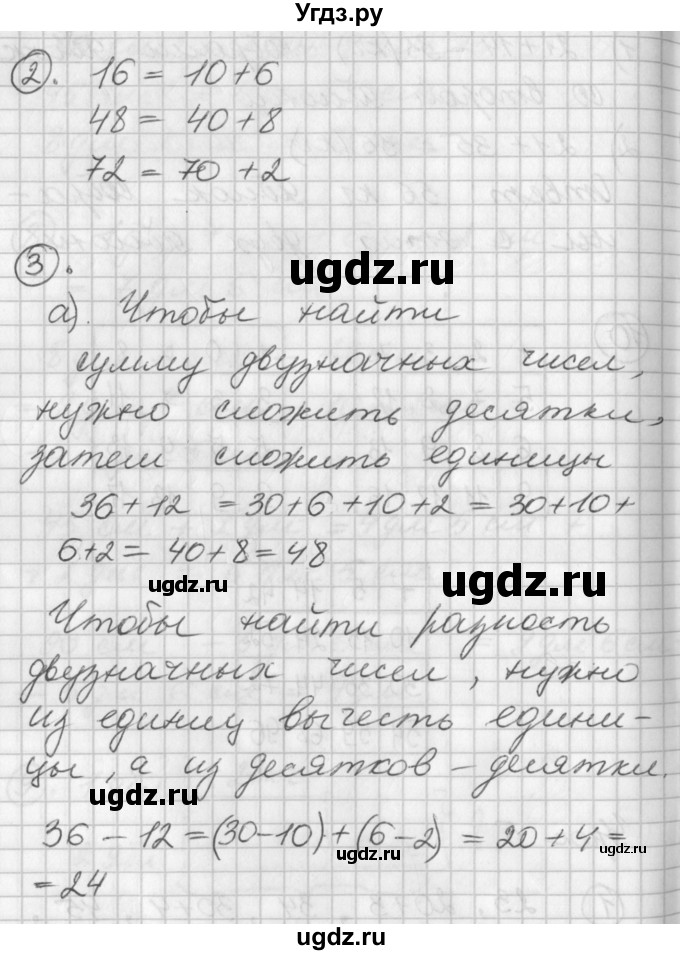 Угдз.ру
2. 16 = 10+6
48 = 40+8
72 = 70 +2
3.
ugdz.ru
а). Чтобы найти
сумму двузначных чисел,
нужно сложить десятки,
затем сложить единицы
36+12 = 30+6+10+2 = 30+10+
6+2= 40+8=48
ugdz.ru
ugdz.ru
Чтобы найти разность
двузначных чисел, нужно
из единиц вычесть едини-
цы, а из десятков – десятки.
ugdz.ru
36 – 12 =(30-10)+(6-2) = 20+4=
ugdz.ru
ugdz.ru
= 24
ugdz.ru
ugdz.ru